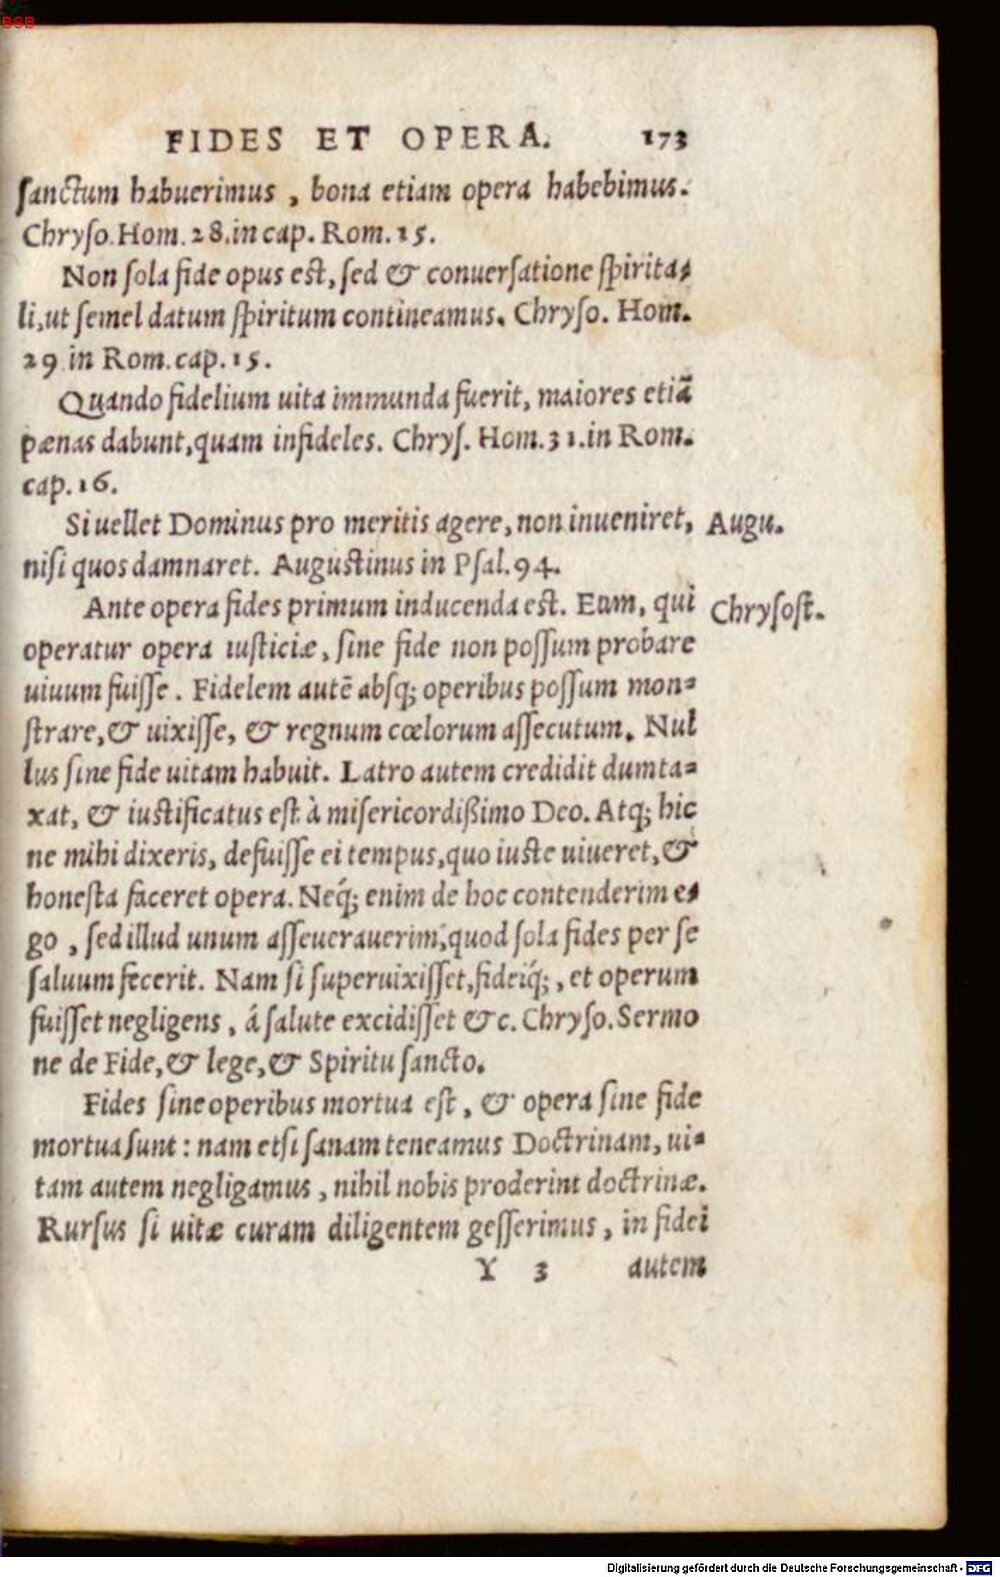 BSB
FIDES ET OPERA. 173
ſanctum habuerimus , bona etiam opera habebimus.
Chryſo. Hom. 28. in cap. Rom. 15.
Non ſola fide opus eſt, ſed & conuerſatione ſpirita-
li, ut ſemel datum ſpiritum contineamus. Chryſo. Hom.
29 in Rom. cap. 15.
Quando fidelium uita immunda fuerit, maiores etiā
pœnas dabunt, quam infideles. Chryſ. Hom. 31. in Rom.
cap. 16.
Si uellet Dominus pro meritis agere, non inueniret, Augu.
niſi quos damnaret. Auguſtinus in Pſal. 94.
Ante opera fides primum inducenda eſt. Eum, qui Chryſoſt.
operatur opera iuſticiæ, ſine fide non poſſum probare
uiuum fuiſſe. Fidelem autē abſq; operibus poſſum mon-
ſtrare, & uixiſſe, & regnum cœlorum aſſecutum. Nul
lus ſine fide uitam habuit. Latro autem credidit dumta-
xat, & iuſtificatus eſt à miſericordißimo Deo. Atq; hic
ne mihi dixeris, defuiſſe ei tempus, quo iuſte uiueret, &
honeſta faceret opera. Neq́; enim de hoc contenderim e-
go , ſed illud unum aſſeuerauerim, quod ſola fides per ſe
ſaluum fecerit. Nam ſi ſuperuixiſſet, fideiq́;, et operum
fuiſſet negligens, á ſalute excidiſſet &c. Chryſo. Sermo
ne de Fide, & lege, & Spiritu ſancto.
Fides ſine operibus mortua eſt, & opera ſine fide
mortua ſunt: nam etſi ſanam teneamus Doctrinam, ui-
tam autem negligamus, nihil nobis proderint doctrinæ.
Rurſus ſi uitæ curam diligentem geſſerimus, in fidei
Y 3 autem
Digitalisierung gefördert durch die Deutsche Forschungsgemeinschaft - DFG